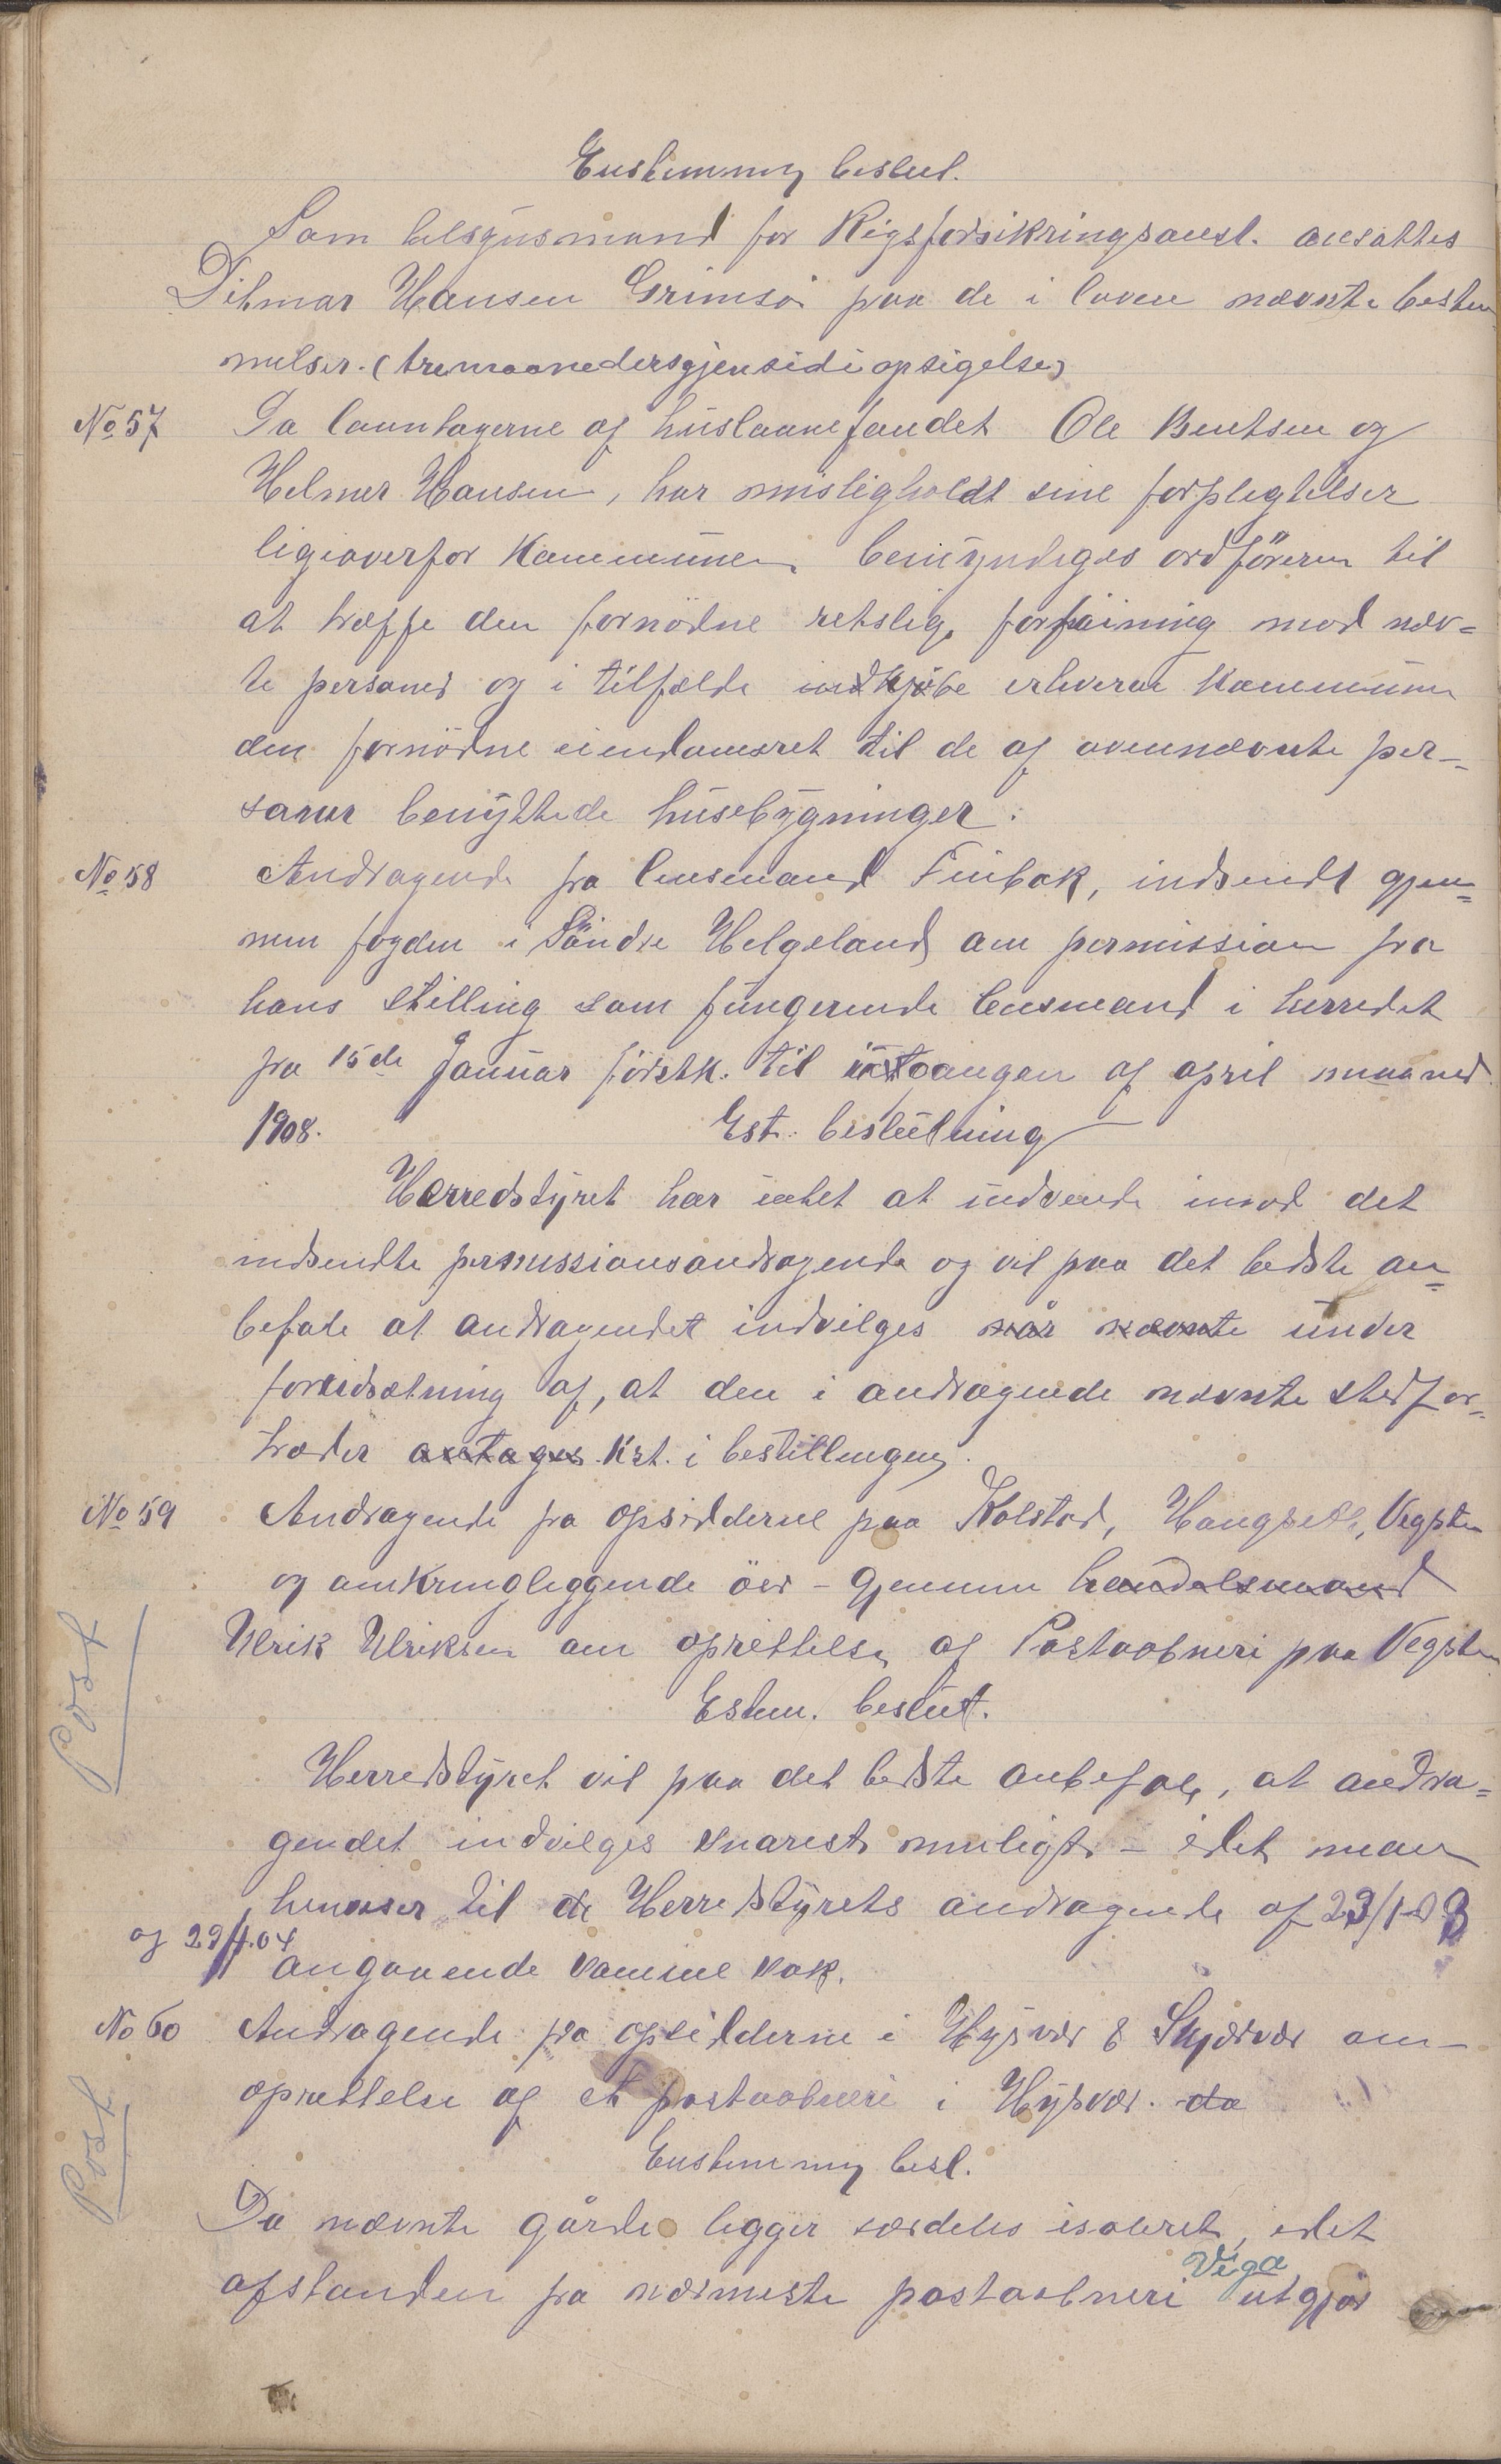 Enstemmig beslut.
Som tilsynsmand for Rigsforsikringsanst. ansattes
Ditmar Hansen Grimsö paa de i loven nævnte bestem
melser. (tremaanedersgjensidi opsigelse)
No 57 Da laantagerne af huslaanefondet Ole Bentsen og
Helmer Hansen, har misligholdt sine forpligtelser
ligeoverfor Kommunen bemyndiges ordföreren til
at træffe den fornödne retslige forföining mod nævn=
te personer og i tilfælde indkjöbe erhverve Kommunen
den fornödne eiendomsret til de af ovennævnte per-
soner benyttede husebygninger.
No 58 Andragende fra lensmand Finbak, indsendt gjen=
nem fogden i Söndre Helgeland om permission fra
hans stilling som fungerende lensmand i herredet
fra 15de Januar förstk. til utgangen af april maaned
1908. Est. beslutning
Herredstyret har intet at indvende imod det
indsendte permissionsandragende og vil paa det bedste an=
befale at andragendet indvilges når nævnte under
forudsætning af, at den i andragende nævnte stedfor=
træder antages Kst. i bestillingen.
No 59 Andragende fra opsidderne paa Kolstad, Haugsett, Vegsten
og omkringliggende öer - Gjennem handelsmand
Ulrik Ulriksen om oprettelse af Postaabneri paa Vegsten
Estem. beslut.
Post
Herredstyret vil paa det bedste anbefale, at andra=
gendet indvilges snarest muligt - idet man
henviser til de Herredstyrets andragende af 23/1 03
og 29/4.04
angaaende samme sak.
No 60 Andragende fra opsidderne i Hysvær & Skjærvær om-
oprettelse af et postaabneri i Hysvær. da
Post
Enstemmig besl.
Da nævnte gårde ligger særdeles isoleret, idet
afstanden fra nærmeste postaabneri Vega utgjør